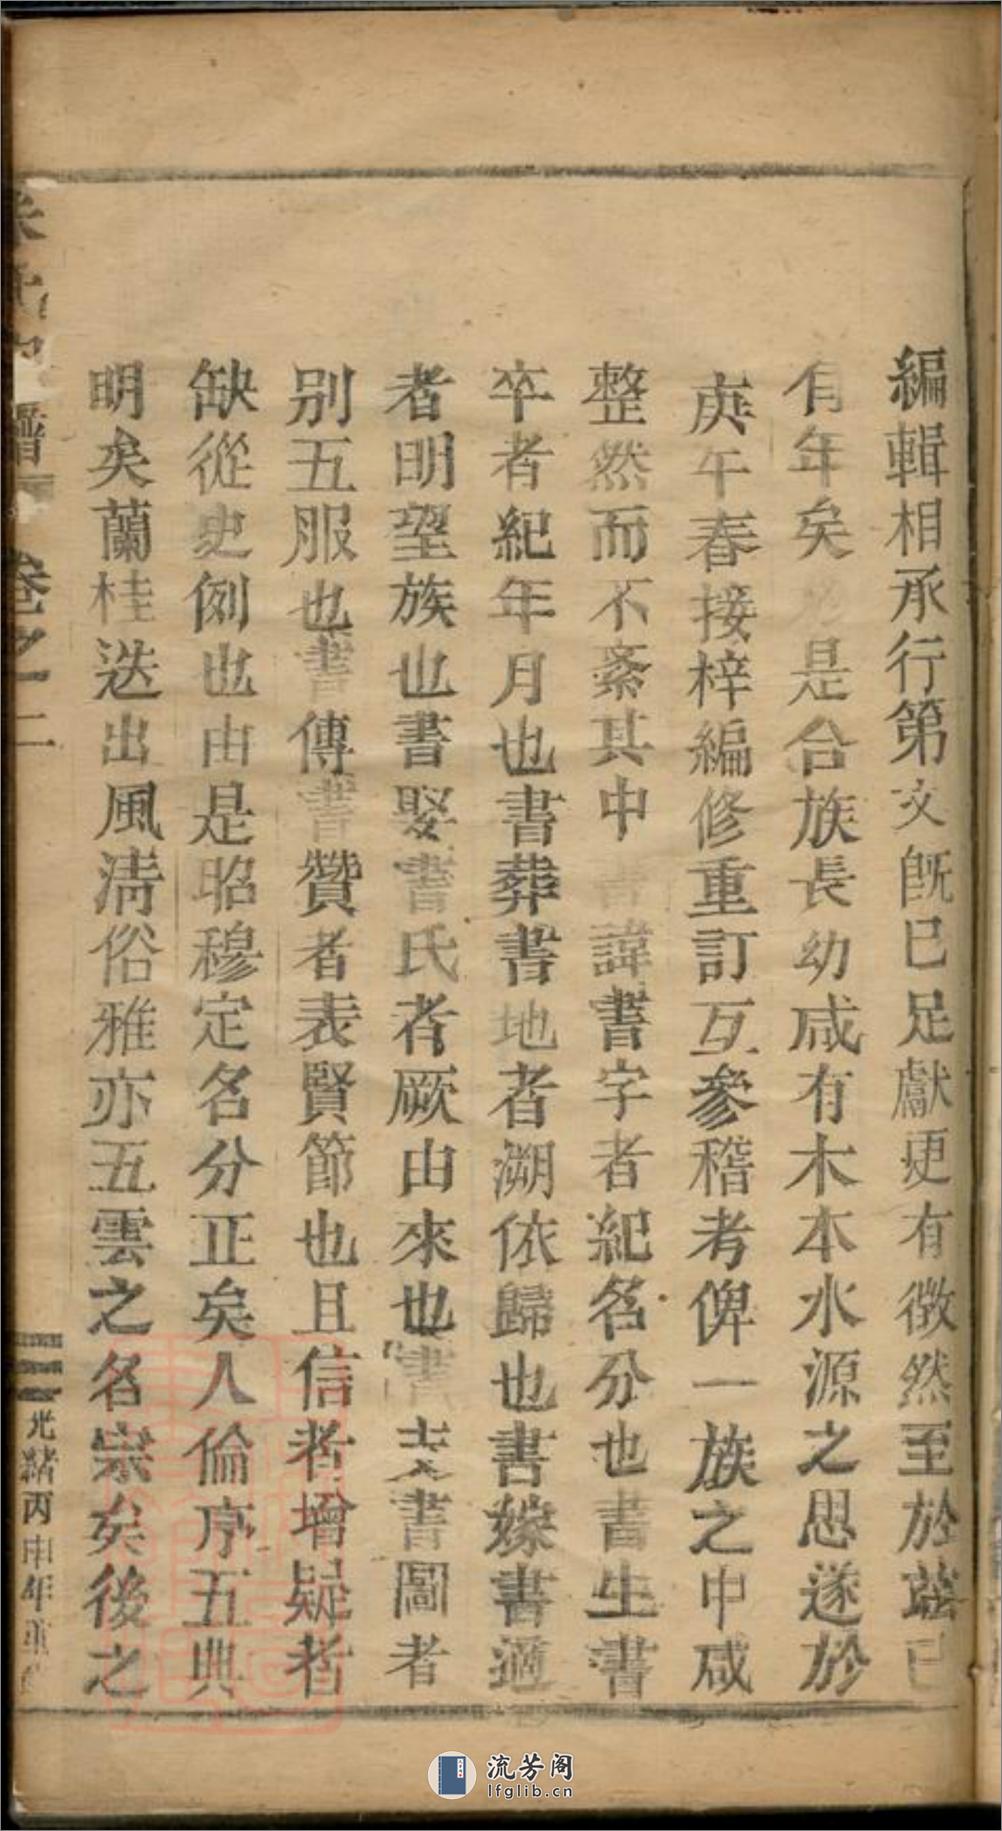 編輯相承行第文既已足獻更有徵然至於茲已
有年矣是合族長幼咸有木本水源之思遂於
庚午春接梓編修重訂互參稽考俾一族之中咸
整然而不紊其中書諱書字者紀名分也書生書
卒者紀年月也書葬書地者溯依歸也書嫁書適
者明望族也書娶書氏者厥由來也書支書圖者
別五服也書傳書贊者表賢節也且信者增疑者
缺從史例也由是昭穆定名分正矣人倫序五典
明矣蘭桂迭出風淸俗雅亦五雲之名宗矣後之
譜 卷之二
光緒丙申年重
流芳阁
lfglib.cn